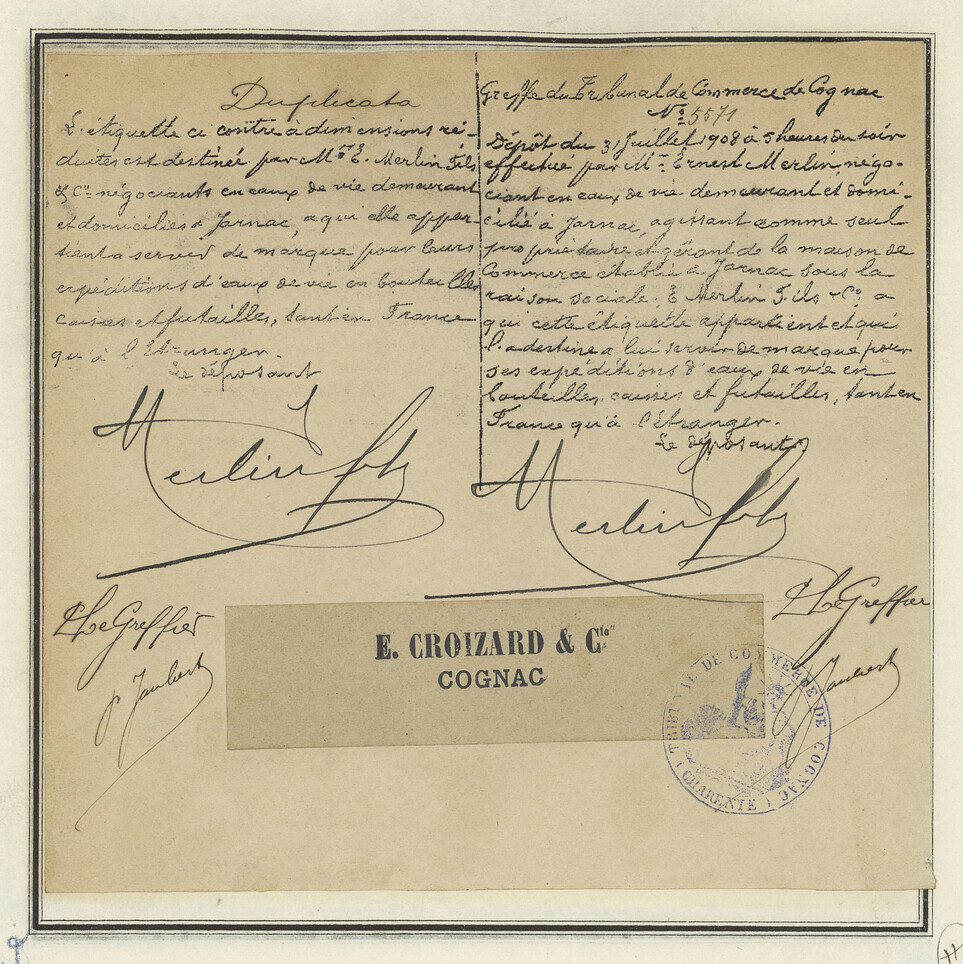 Duplicata
L'étiquette ci contre à dimensions ré-
duites est destinée par Mrs E. Merlin Fils
& Co négociants en eaux de vie demeurant
et domiciliés à Jarnac, a qui elle appar-
tient a servir de marque pour leurs
expéditions d'eaux de vie en bouteilles
caisses et futailles, tant en France
qu'à l'Etranger.
Le déposant
Merlin fils
Le Greffier
p Jaubert
Greffe du Tribunal de Commerce de Cognac
No 5571
Dépôt du 31 Juillet 1908 à 5 heures du soir
effectué par Mr Ernest Merlin, négo-
ciant en eaux de vie demeurant et domi-
cilié à Jarnac, agissant comme seul
propriétaire et gérant de la maison de
Commerce établie à Jarnac sous la
raison sociale: E Merlin Fils & Co. a
qui cette étiquette appartient et qui
l'a destine a lui servir de marque pour
ses expéditions d'eaux de vie en
bouteilles, caisses et futailles, tant en
France qu'à l'étranger.
Le déposant
Merlin fils
Le Greffier
p Jaubert
E. CROIZARD & Cie
COGNAC
TRIBUNAL DE COMMERCE DE COGNAC
(CHARENTE)